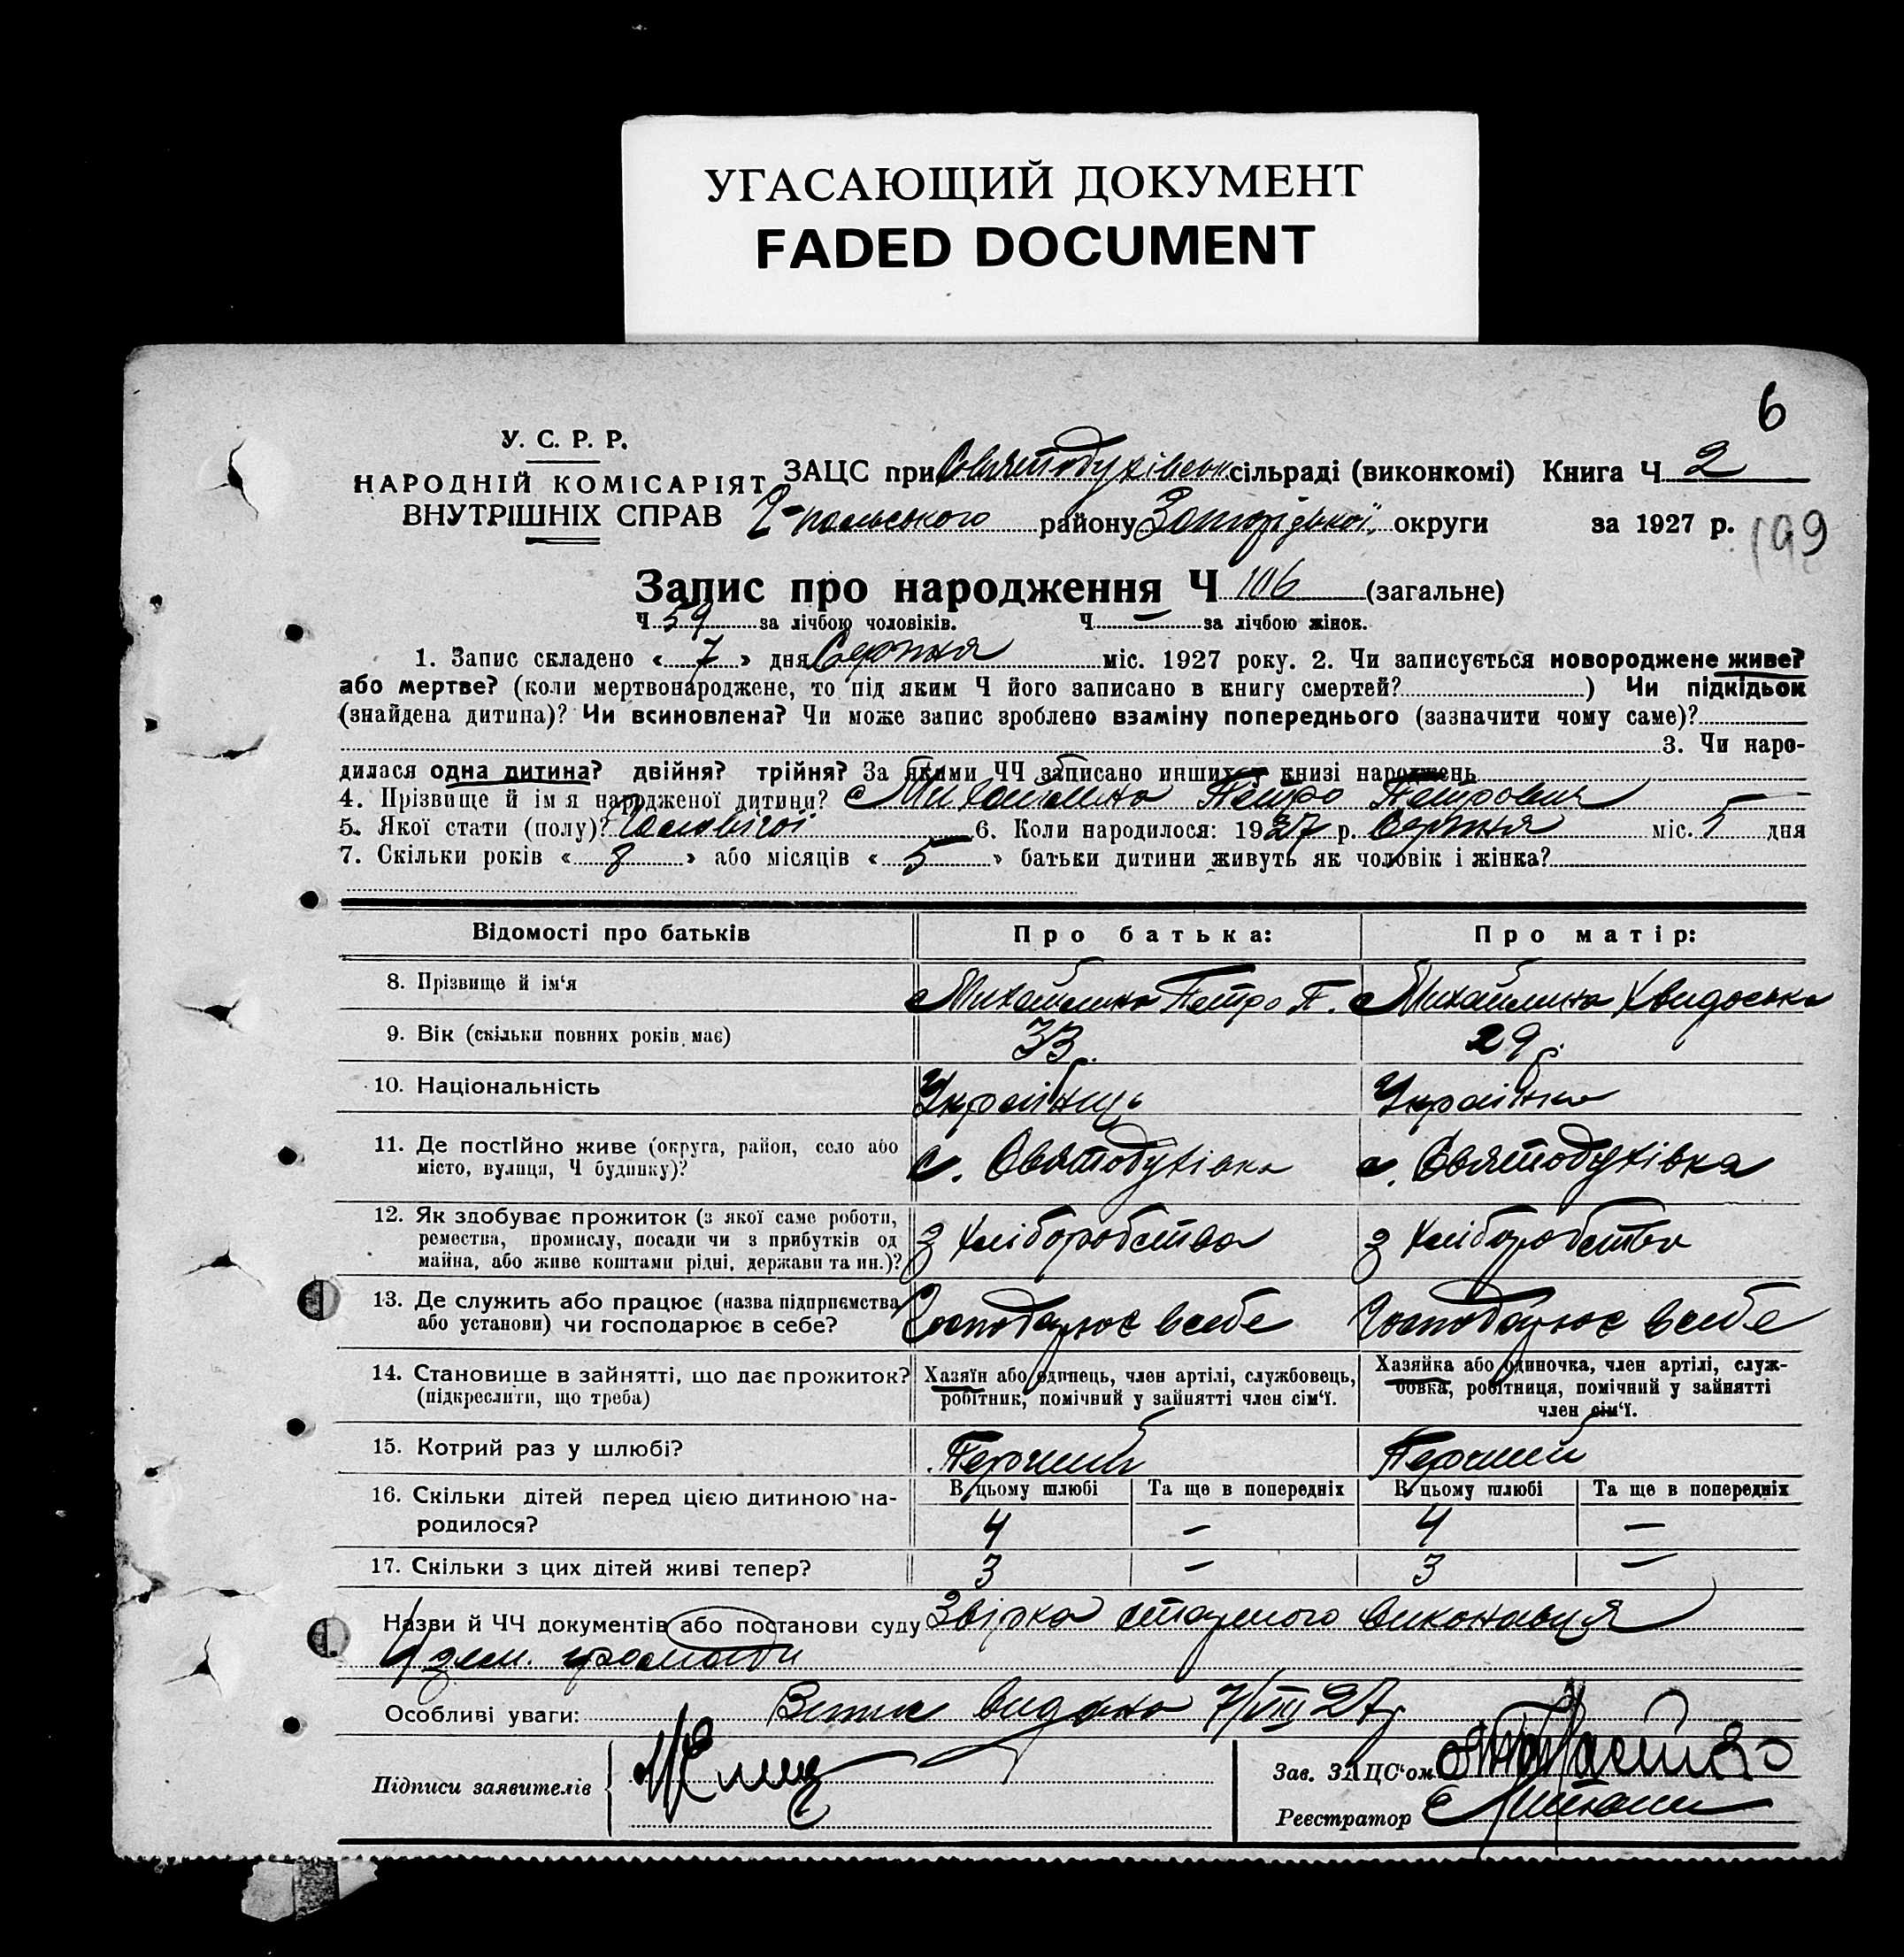 УГАСАЮЩИЙ ДОКУМЕНТ
FADED DOCUMENT
6
У. С. Р. Р.
НАРОДНІЙ КОМІСАРІЯТ
ВНУТРІШНІХ СПРАВ
ЗАЦС при Святодухівськ сільраді (виконкомі) Книга Ч 2
Г-польського району Запорізької округи за 1927 р.
199
Запис про народження Ч 106 (загальне)
Ч 59 за лічбою чоловіків. Ч — за лічбою жінок.
1. Запис складено « 7 » дня Серпня міс. 1927 року. 2. Чи записується новороджене живе?
або мертве? (коли мертвонароджене, то під яким Ч його записано в книгу смертей? ) Чи підкідьок
(знайдена дитина)? Чи всиновлена? Чи може запис зроблено взаміну попереднього (зазначити чому саме)?
3. Чи наро-
дилася одна дитина? двійня? трійня? За якими ЧЧ записано инших у книзі народжень
4. Прізвище й імя народженої дитини? Михайлина Петро Петрович —
5. Якої стати (полу)? Чоловічої 6. Коли народилося: 1927 р. Серпня міс. 5 дня
7. Скільки років « 8 » або місяців « 5 » батьки дитини живуть як чоловік і жінка?
Відомості про батьків Про батька: Про матір:
8. Прізвище й ім'я Михайлина Петро П. Михайлина Хвидоська
9. Вік (скільки повних років має) 33 29 р.
10. Національність Українць Українка
11. Де постійно живе (округа, район, село або
місто, вулиця, Ч будинку)? с. Святодухівка с. Святодухівка
12. Як здобуває прожиток (з якої саме роботи,
ремества, промислу, посади чи з прибутків од
майна, або живе коштами рідні, держави та ин.)? З хліборобства З хліборобства
13. Де служить або працює (назва підприємства
або установи) чи господарює в себе? Господарює всебе Господарює всебе
14. Становище в зайнятті, що дає прожиток?
(підкреслити, що треба)
Хазяїн або одинець, член артілі, службовець,
робітник, помічний у зайнятті член сім'ї.
Хазяйка або одиночка, член артілі, служ-
бовка, робітниця, помічний у зайнятті
член сім'ї.
15. Котрий раз у шлюбі? Перший Перший
16. Скільки дітей перед цією дитиною на-
родилося?
В цьому шлюбі Та ще в попередніх В цьому шлюбі Та ще в попередніх
4 — 4 —
17. Скільки з цих дітей живі тепер? 3 — 3 —
Назви й ЧЧ документів або постанови суду Звірка старшого виконавця
громади
Особливі уваги: Витяг видано 7/VIII 27 р.
Підписи заявителів
Зав. ЗАЦС'ом
Реєстратор